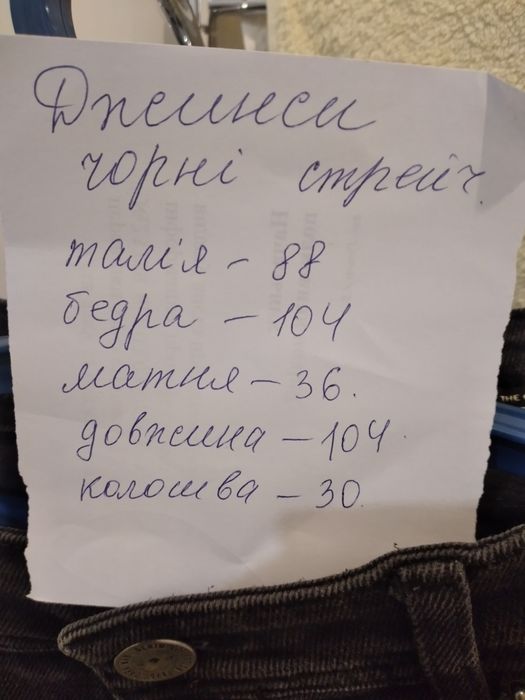 Джинси
чорні стрейч.
талія - 88
бедра - 104
матня - 36.
довжина - 104.
колошва - 30.
THE